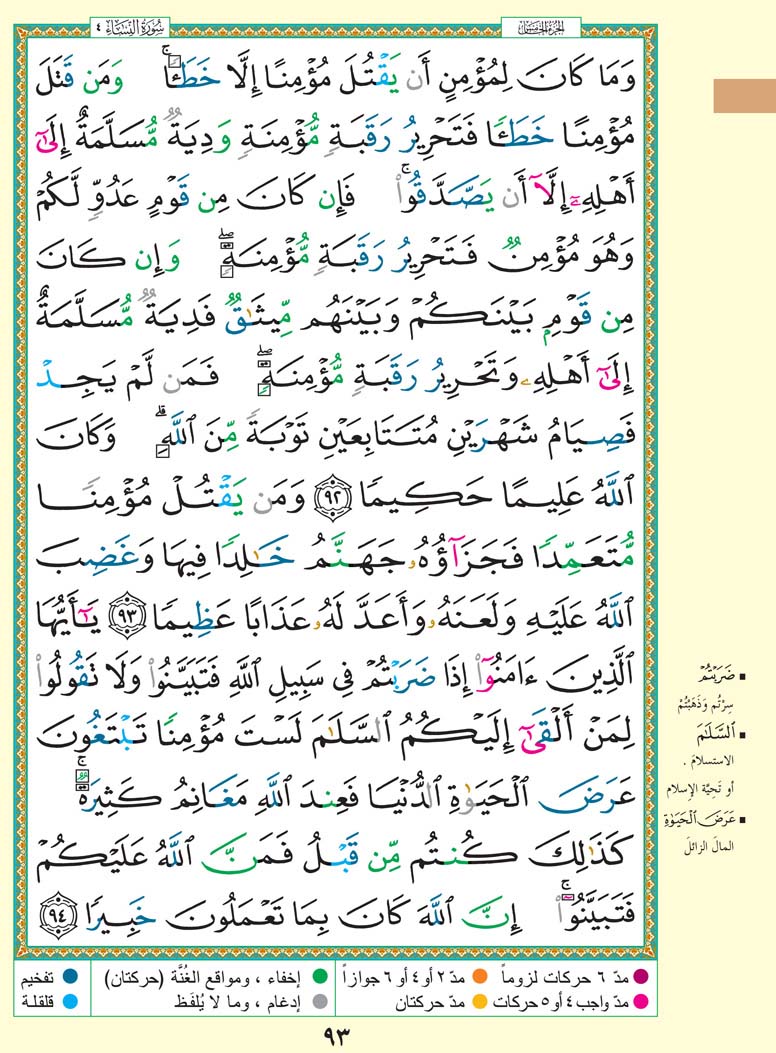 سُورَةُ النِّسَاءِ ٤
الجُزءُ الخَامِسُ
وَمَا كَانَ لِمُؤْمِنٍ أَن يَقْتُلَ مُؤْمِنًا إِلَّا خَطَـًٔا ۚ وَمَن قَتَلَ
مُؤْمِنًا خَطَـًٔا فَتَحْرِيرُ رَقَبَةٍ مُّؤْمِنَةٍ وَدِيَةٌ مُّسَلَّمَةٌ إِلَىٰٓ
أَهْلِهِۦٓ إِلَّآ أَن يَصَّدَّقُوا۟ ۚ فَإِن كَانَ مِن قَوْمٍ عَدُوٍّ لَّكُمْ
وَهُوَ مُؤْمِنٌ فَتَحْرِيرُ رَقَبَةٍ مُّؤْمِنَةٍ ۖ وَإِن كَانَ
مِن قَوْمٍۭ بَيْنَكُمْ وَبَيْنَهُم مِّيثَـٰقٌ فَدِيَةٌ مُّسَلَّمَةٌ
إِلَىٰٓ أَهْلِهِۦ وَتَحْرِيرُ رَقَبَةٍ مُّؤْمِنَةٍ ۖ فَمَن لَّمْ يَجِدْ
فَصِيَامُ شَهْرَيْنِ مُتَتَابِعَيْنِ تَوْبَةً مِّنَ ٱللَّهِ ۗ وَكَانَ
ٱللَّهُ عَلِيمًا حَكِيمًا ٩٢ وَمَن يَقْتُلْ مُؤْمِنًا
مُّتَعَمِّدًا فَجَزَآؤُهُۥ جَهَنَّمُ خَـٰلِدًا فِيهَا وَغَضِبَ
ٱللَّهُ عَلَيْهِ وَلَعَنَهُۥ وَأَعَدَّ لَهُۥ عَذَابًا عَظِيمًا ٩٣ يَـٰٓأَيُّهَا
ٱلَّذِينَ ءَامَنُوٓا۟ إِذَا ضَرَبْتُمْ فِى سَبِيلِ ٱللَّهِ فَتَبَيَّنُوا۟ وَلَا تَقُولُوا۟
لِمَنْ أَلْقَىٰٓ إِلَيْكُمُ ٱلسَّلَـٰمَ لَسْتَ مُؤْمِنًا تَبْتَغُونَ
عَرَضَ ٱلْحَيَوٰةِ ٱلدُّنْيَا فَعِندَ ٱللَّهِ مَغَانِمُ كَثِيرَةٌ ۚ
كَذَٰلِكَ كُنتُم مِّن قَبْلُ فَمَنَّ ٱللَّهُ عَلَيْكُمْ
فَتَبَيَّنُوٓا۟ ۚ إِنَّ ٱللَّهَ كَانَ بِمَا تَعْمَلُونَ خَبِيرًا ٩٤
ضَرَبْتُمْ
سِرْتُم وَذَهَبْتُمْ
السَّلَـٰمَ
الاستسلامَ .
أو تَحِيَّة الإسلام
عَرَضَ الْحَيَوٰةِ
المالَ الزائلَ
مدّ ٦ حركات لزوماً
مدّ ٢ أو ٤ أو ٦ جوازاً
إخفاء ، ومواقع الغُنَّة (حركتان)
تفخيم
مدّ واجب ٤ أو ٥ حركات
مدّ حركتان
إدغام ، وما لا يُلفَظ
قلقلة
٩٣